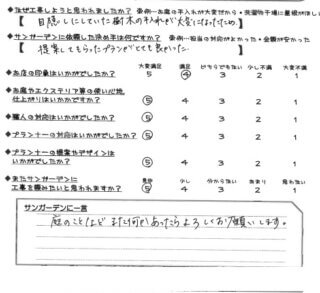 ◆なぜ工事しようと思われましたか? 参例…お庭の手入れが大変だから・洗濯物干場に屋根がほしい
【 目隠しにしていた樹木の手入れが大変になったため。
◆サンガーデンに依頼した決め手は何ですか? 参例…担当の対応がよかった・金額が安かった
【 提案してもらったプランがとても良かった。
大変満足 満足 どちらでもない 少し不満 大変不満
◆お店の印象はいかがでしたか? 5 4 3 2 1
◆お庭やエクステリア等の使い心地
仕上がりはいかかですか? 5 4 3 2 1
◆職人の対応はいかがでしたか? 5 4 3 2 1
◆プランナーの対応はいかがでしたか? 5 4 3 2 1
◆プランナーの提案やデザインは
いかがでしたか? 5 4 3 2 1
◆またサンガーデンに
工事を頼みたいと思われますか? 5 4 3 2 1
少し 分からない あまり 思わない
サンガーデンに一言
庭のことなど また何かあったらよろしくお願いします。